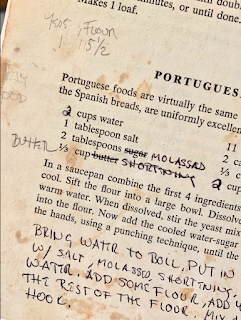 Makes 1 loaf.
minutes, or until done.
FLOUR
5 1/2
PORTUGUES
Portuguese foods are virtually the same
the Spanish breads, are uniformly excellen
2 cups water
1 tablespoon salt
2 tablespoons sugar MOLASSES
BUTTER 1/3 cup butter SHORTNING
11
2
1/3 c
2 cup
In a saucepan combine the first 4 ingredients
cool. Sift the flour into a large bowl. Dissolv
warm water. When dissolved, stir the yeast mix
into the flour. Now add the cooled water-sugar
the hands, using a punching technique, until the
BRING WATER TO BOIL, PUT IN
W/ SALT, MOLASSES, SHORTNING,
WATER. ADD SOME FLOUR, ADD
THE REST OF THE FLOUR. MIX
HOOK.